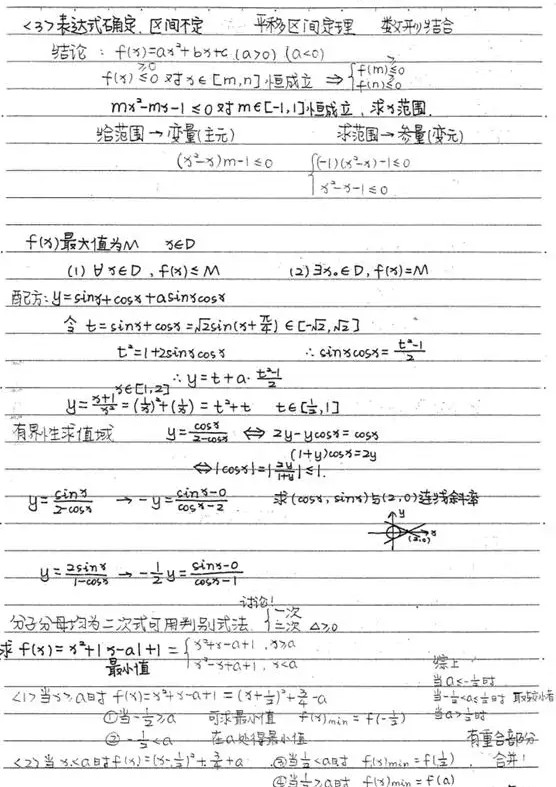 <3>表达式确定,区间不定 平移区间定理 数形结合
结论: f(x)=ax²+bx+c (a>0) (a<0)
f(x)≤0 对x∈[m,n]恒成立 ⇒ {f(m)≤0
≥0
f(n)≤0
≥
mx²-mx-1≤0对m∈[-1,1]恒成立,求x范围.
给范围→变量(主元) 求范围→参量(变元)
(x²-x)m-1≤0 {(-1)(x²-x)-1≤0
x²-x-1≤0
f(x)最大值为M x∈D
(1) ∀x∈D, f(x)≤M (2)∃x₀∈D, f(x)=M
配方: y=sinx+cosx+asinxcosx
令 t=sinx+cosx=√2sin(x+π/4)∈[-√2,√2]
t²=1+2sinxcosx ∴sinxcosx=(t²-1)/2
∴y=t+a·(t²-1)/2
x∈[1,2]
y=(x+1)/x²=(1/x)²+(1/x)=t²+t t∈[1/2,1]
有界性求值域 y=cosx/(2-cosx) ⇔ 2y-ycosx=cosx
(1+y)cosx=2y
⇔|cosx|=|2y/(1+y)|≤1.
y=sinx/(2-cosx) → -y=(sinx-0)/(cosx-2) 求(cosx,sinx)与(2,0)连线斜率
y
x
(2,0)
y=2sinx/(1-cosx) → -1/2y=(sinx-0)/(cosx-1)
讨论!
分子分母均为二次式可用判别式法 {一次
二次 △≥0
求 f(x)=x²+|x-a|+1={x²+x-a+1, x≥a
最小值 x²-x+a+1, x<a
综上
当a≤-1/2时
<1>当x≥a时 f(x)=x²+x-a+1=(x+1/2)²+3/4-a
当-1/2<a≤1/2时 取较小者
①当-1/2≥a 可求最小值 f(x)min=f(-1/2)
当a>1/2时
②-1/2<a 在a处得最小值
有重合部分
<2>当x<a时f(x)=(x-1/2)²+3/4+a ③当1/2<a时 f(x)min=f(1/2) , 合并!
④当1/2≥a时 f(x)min=f(a)